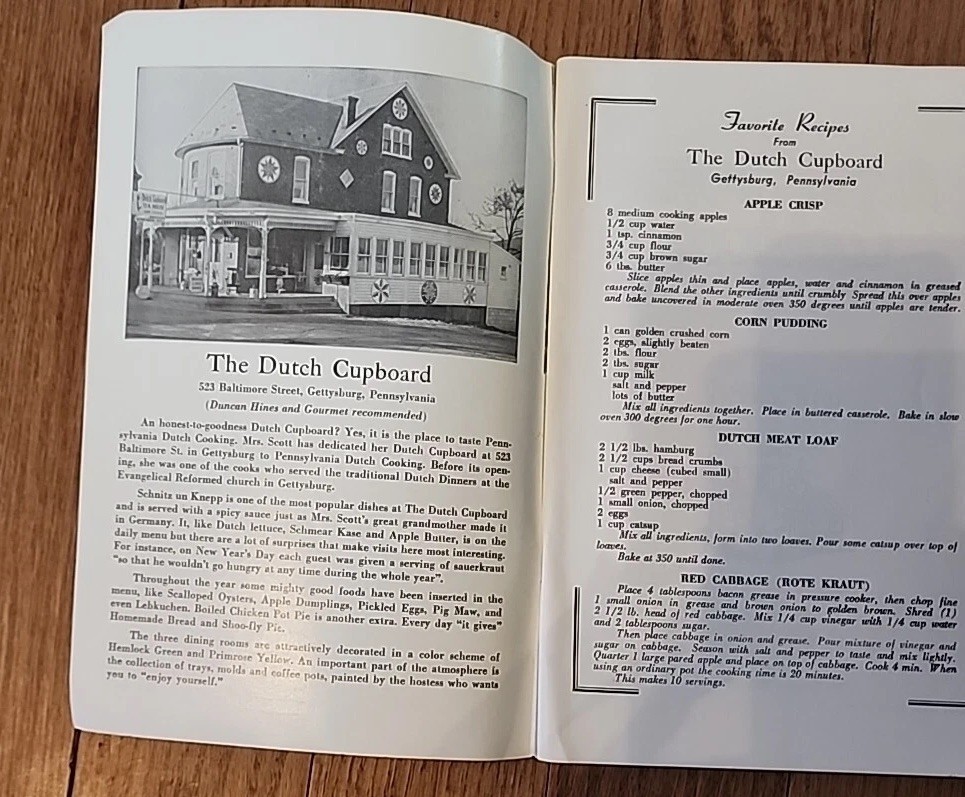 The Dutch Cupboard
523 Baltimore Street, Gettysburg, Pennsylvania
(Duncan Hines and Gourmet recommended)
An honest-to-goodness Dutch Cupboard? Yes, it is the place to taste Penn-
sylvania Dutch Cooking. Mrs. Scott has dedicated her Dutch Cupboard at 523
Baltimore St. in Gettysburg to Pennsylvania Dutch Cooking. Before its open-
ing, she was one of the cooks who served the traditional Dutch Dinners at the
Evangelical Reformed church in Gettysburg.
Schnitz un Knepp is one of the most popular dishes at The Dutch Cupboard
and is served with a spicy sauce just as Mrs. Scott's great grandmother made it
in Germany. It, like Dutch lettuce, Schmear Kase and Apple Butter, is on the
daily menu but there are a lot of surprises that make visits here most interesting.
For instance, on New Year's Day each guest was given a serving of sauerkraut
"so that he wouldn't go hungry at any time during the whole year".
Throughout the year some mighty good foods have been inserted in the
menu, like Scalloped Oysters, Apple Dumplings, Pickled Eggs, Pig Maw, and
even Lebkuchen. Boiled Chicken Pot Pie is another extra. Every day "it gives"
Homemade Bread and Shoo-fly Pie.
The three dining rooms are attractively decorated in a color scheme of
Hemlock Green and Primrose Yellow. An important part of the atmosphere is
the collection of trays, molds and coffee pots, painted by the hostess who wants
you to "enjoy yourself."
Favorite Recipes
From
The Dutch Cupboard
Gettysburg, Pennsylvania
APPLE CRISP
8 medium cooking apples
1/2 cup water
1 tsp. cinnamon
3/4 cup flour
3/4 cup brown sugar
6 tbs. butter
Slice apples thin and place apples, water and cinnamon in greased
casserole. Blend the other ingredients until crumbly Spread this over apples
and bake uncovered in moderate oven 350 degrees until apples are tender.
CORN PUDDING
1 can golden crushed corn
2 eggs, slightly beaten
2 tbs. flour
2 tbs. sugar
1 cup milk
salt and pepper
lots of butter
Mix all ingredients together. Place in buttered casserole. Bake in slow
oven 300 degrees for one hour.
DUTCH MEAT LOAF
2 1/2 lbs. hamburg
2 1/2 cups bread crumbs
1 cup cheese (cubed small)
salt and pepper
1/2 green pepper, chopped
1 small onion, chopped
2 eggs
1 cup catsup
Mix all ingredients, form into two loaves. Pour some catsup over top of
loaves.
Bake at 350 until done.
RED CABBAGE (ROTE KRAUT)
Place 4 tablespoons bacon grease in pressure cooker, then chop fine
1 small onion in grease and brown onion to golden brown. Shred (1)
2 1/2 lb. head of red cabbage. Mix 1/4 cup vinegar with 1/4 cup water
and 2 tablespoons sugar.
Then place cabbage in onion and grease. Pour mixture of vinegar and
sugar on cabbage. Season with salt and pepper to taste and mix lightly.
Quarter 1 large pared apple and place on top of cabbage. Cook 4 min. When
using an ordinary pot the cooking time is 20 minutes.
This makes 10 servings.